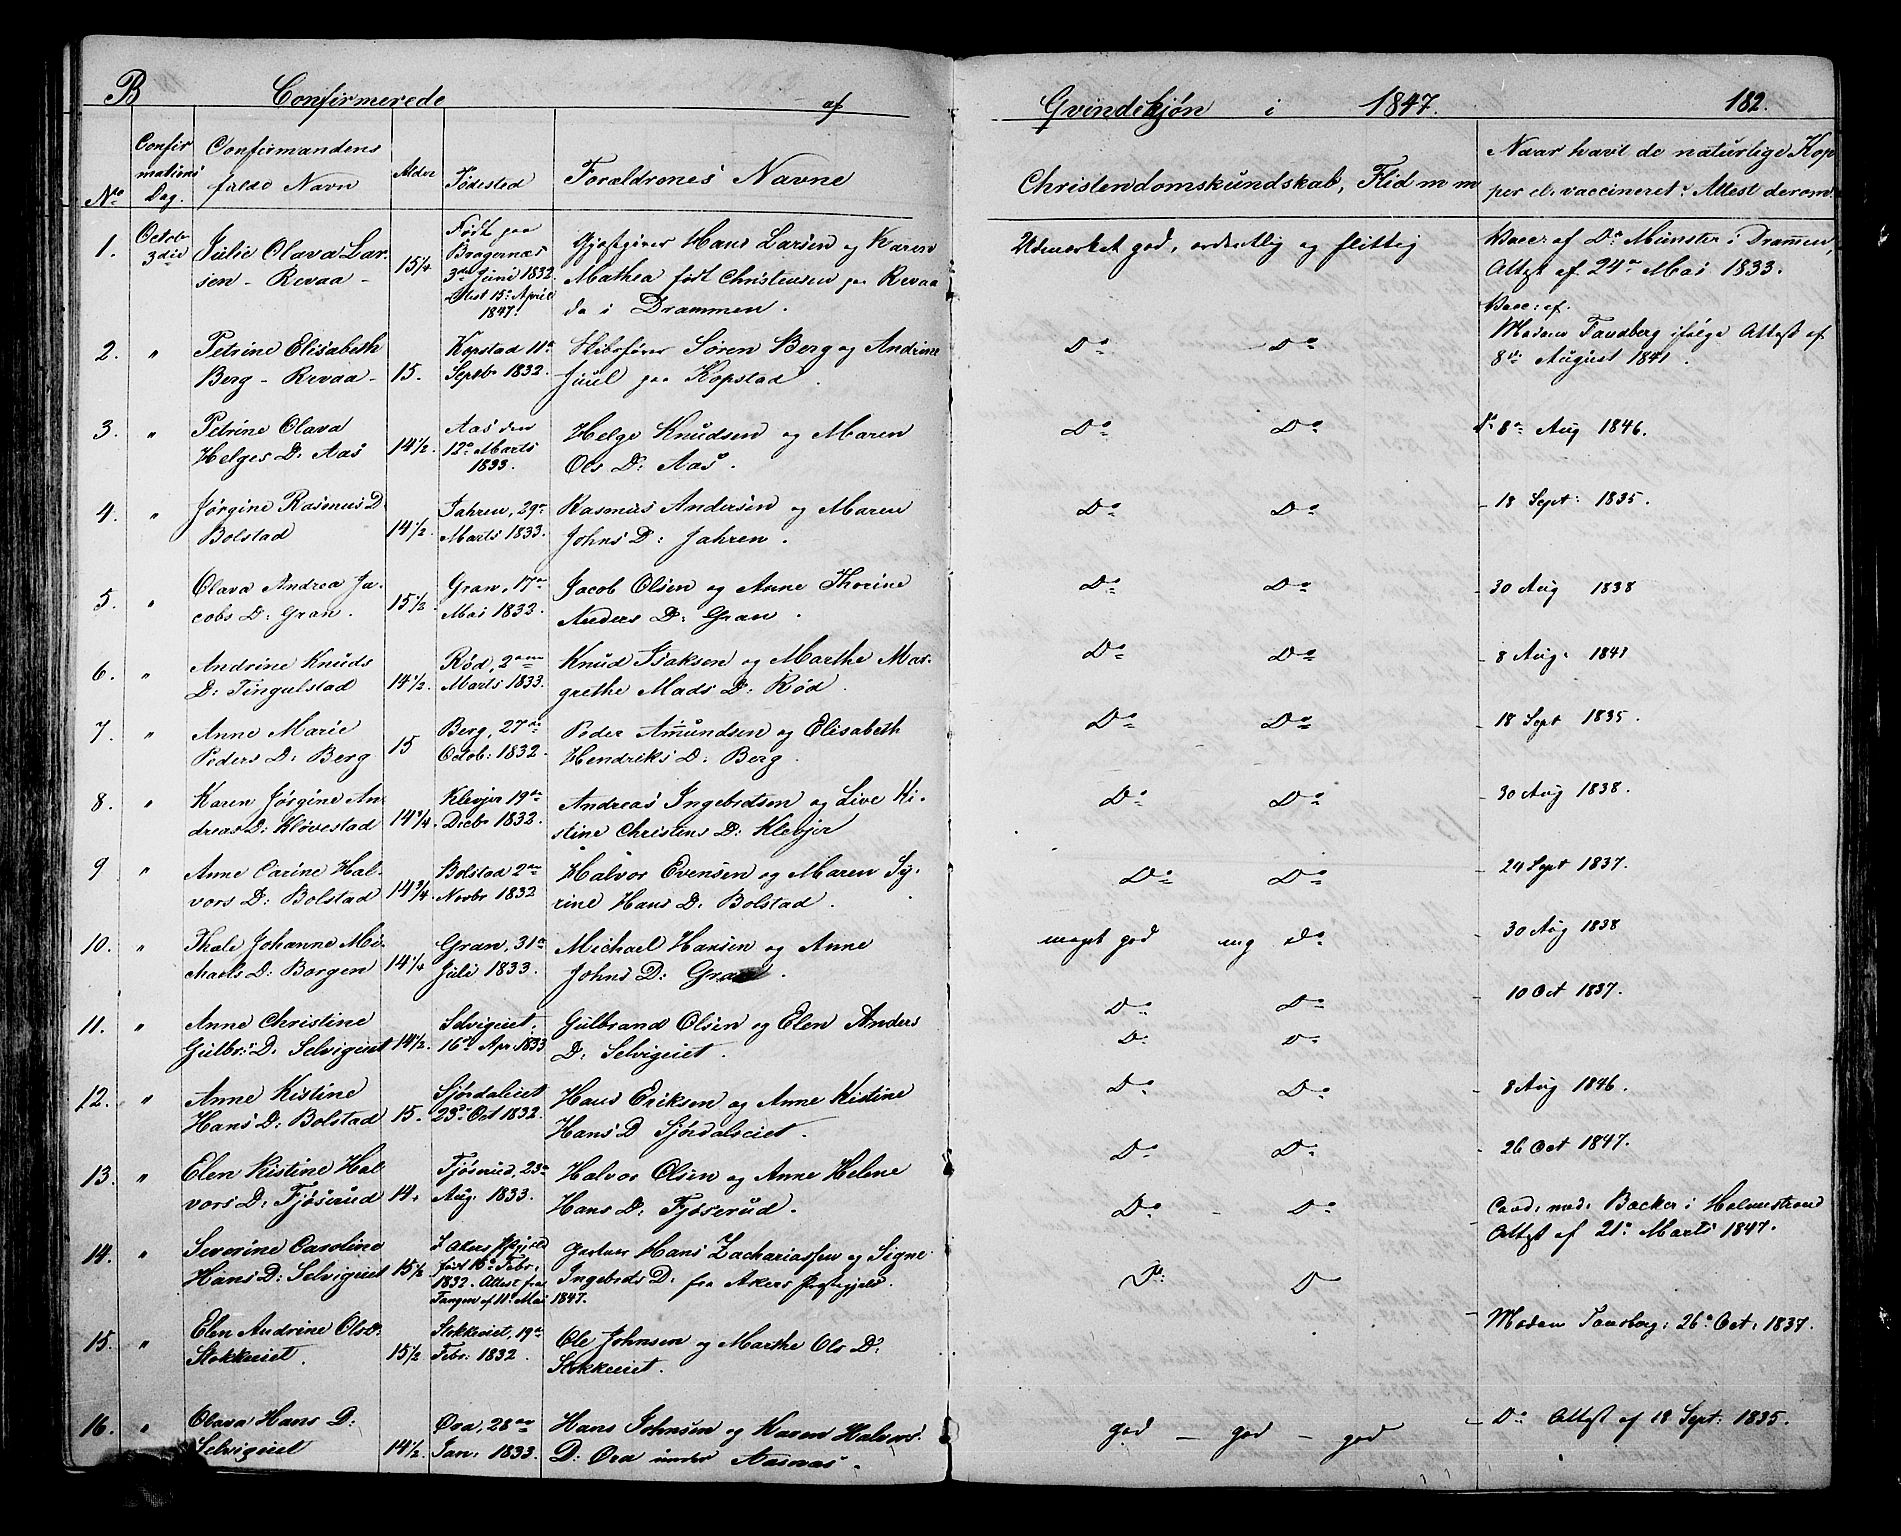 B Confirmerede af Qvindekjøn i 1847. 182.
No Confirmations Dag. Confirmandens fulde Navn Alder Fødested Forældrenes Navne Christendomskundskab, Flid m m Naar havt de naturlige Kopper el. vaccineret & Attest derom.
1. Octob: 3die Julie Olava Larsen - Revaa - 15 1/4 Født paa Bragernæs 3de Juni 1832. Attest 15de April 1847. Gjæstgiver Hans Larsen og Karen Mathea født Christensen paa Revaa da i Drammen. Udmærket god, ordentlig og flittig Vacc: af Dr Münster i Drammen, Attest af 24de Mai 1833.
2. " Petrine Elisabeth Berg - Revaa - 15. Kopstad 11te Septbr 1832. Skibsfører Søren Berg og Andrine Juul paa Kopstad. Do Do Vacc: af Madam Tandberg ifølge Attest af 8de August 1841.
3. " Petrine Olava Helges D: Aas 14 1/2. Aas den 12te Marts 1833. Helge Knudsen og Maren Ols D: Aas. Do Do Do 8de Aug 1846.
4. " Jørgine Rasmus D: Bolstad 14 1/2. Jahren, 29de Marts 1833. Rasmus Andersen og Maren Johns D: Jahren. Do Do - 18 Sept: 1835.
5. " Olava Andrea Jacobs D: Gran. 15 1/2. Gran, 17de Mai 1832. Jacob Olsen og Anne Thorine Anders D: Gran. Do Do - 30 Aug 1838
6. " Andrine Knuds D: Tingulstad 14 1/2. Rød, 2den Marts 1833. Knud Isaksen og Marthe Margrethe Mads D: Rød. Do Do - 8 Aug. 1841
7. " Anne Marie Peders D: Berg 15 Berg, 27de Octob: 1832. Peder Amundsen og Elisabeth Hendriks D: Berg. Do Do - 18 Sept 1835.
8. " Karen Jørgine Andreas D: Kløvestad 14 3/4. Klevjer 19de Decbr 1832. Andreas Ingebrdtsen og Live Kistine Christens D: Klevjer Do Do - 30 Aug 1838.
9 " Anne Carine Halvors D: Bolstad 14 3/4. Bolstad 2den Novbr 1832 Halvor Evensen og Maren Syrine Hans D: Bolstad. Do Do - 24 Sept 1837.
10. " Thale Johanne Michaels D: Borgen 14 1/4 Gran, 31te Juli 1833. Michael Hansen og Anne Johns D: Gran. meget god mg Do - 30 Aug 1838
11. " Anne Christine Gulbr: D: Selvigeiet 14 1/2. Selvigeiet, 16de Apr. 1833 Gulbrand Olsen og Elen Anders D: Selvigeiet. Do Do - 10 Oct 1837.
D: D:
12. " Anne Kistine Hans D: Bolstad 15. Sjørdaleiet 23de Oct 1832. Hans Eriksen og Anne Kistine Hans D Sjørdalseiet. Do Do - 8 Aug 1846.
13. " Elen Kistine Halvors D: Fjøserud 14. Fjøserud, 23de Aug. 1833. Halvor Olsen og Anne Helene Hans D: Fjøserud. Do Do - 26 Oct 1847.
14. " Severine Caroline Hans D: Selvigeiet 15 1/2 I Akers Pgjeld født 15de Febr. 1832. Attest fra Tangen af 11te Mai 1847. Gartner Hans Zachariassen og Signe Ingebrets D: fra Akers Præstegjeld. Do - Do Cand: med: Bæcker i Holmestrand Attest af 21de Marts 1847.
15. " Elen Andrine Ols D: Stokkeeiet. 15 1/2 Stokkeeiet, 19de Febr. 1832. Ole Johnsen og Marthe Ols D: Stokkeeiet. Do: D - Madam Tandberg: 26de Oct. 1837.
16. " Olava Hans D: Selvigeiet 14 1/2. Øra, 28de Jan: 1833. Hans Johnsen og Karen Halvors D: Øra under Aasnæs. god - god - god - Do Attest af 18 Sept: 1835.